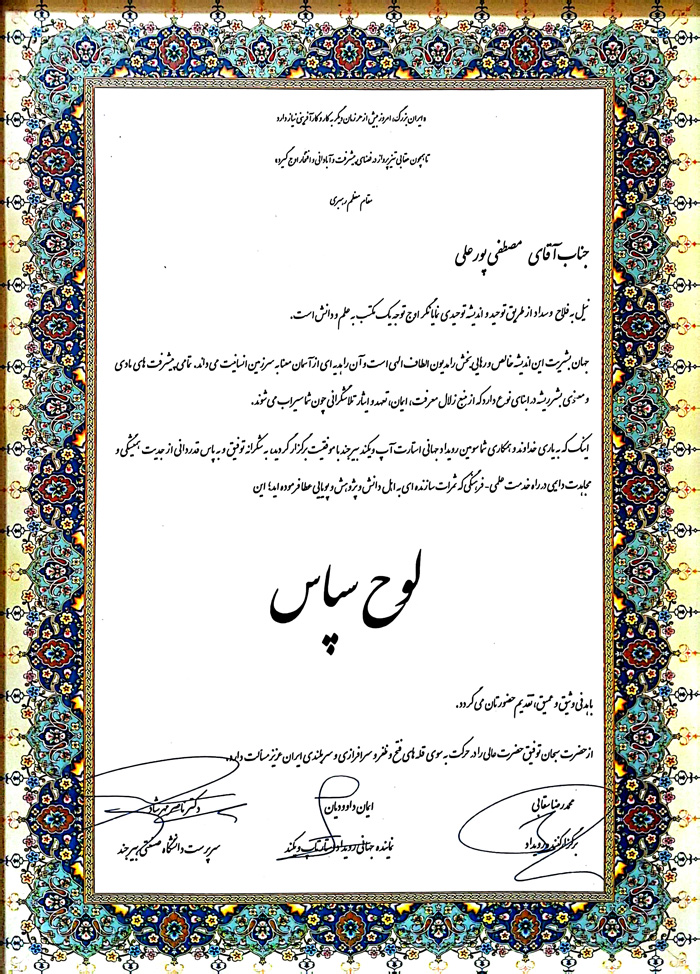 «ایران بزرگ، امروز بیش از هر زمان دیگر به کار و کارآفرینی نیاز دارد
تا همچون عقابی تیزپرواز در فضای پیشرفت و آبادانی و افتخار اوج گیرد»
مقام معظم رهبری
جناب آقای مصطفی پورعلی
نیل به فلاح و سداد از طریق توحید و اندیشه توحیدی نمایانگر اوج توجه یک مکتب به علم و دانش است.
جهان بشریت این اندیشه خالص و رهایی بخش را مدیون الطاف الهی است و آن را هدیه ای از آسمان معنا به سرزمین انسانیت می داند. تمامی پیشرفت های مادی
و معنوی بشر ریشه در ابنای نوع دارد که از منبع زلال معرفت، ایمان، تعهد و ایثار تلاشگرانی چون شما سیراب می شوند.
اینک که به یاری خداوند و همکاری شما سومین رویداد جهانی استارت آپ ویکند بیرجند با موفقیت برگزار گردید، به شکرانه توفیق و به پاس قدردانی از جدیت همیشگی و
مجاهدت دایمی در راه خدمت علمی - فرهنگی که ثمرات سازنده ای به اهل دانش و پژوهش و پویایی عطا فرموده اید؛ این
لوح سپاس
با بدنی وثیق و عمیق، تقدیم حضورتان می گردد.
از حضرت سبحان توفیق حضرت عالی را در حرکت به سوی قله های فتح و ظفر و سرافرازی و سربلندی ایران عزیز مسالت دارم.
محمدرضا سقایی ایمان داوودیان دکتر ناصر مهرشاد
برگزارکننده رویداد نماینده جهانی رویداد استارت آپ ویکند سرپرست دانشگاه صنعتی بیرجند